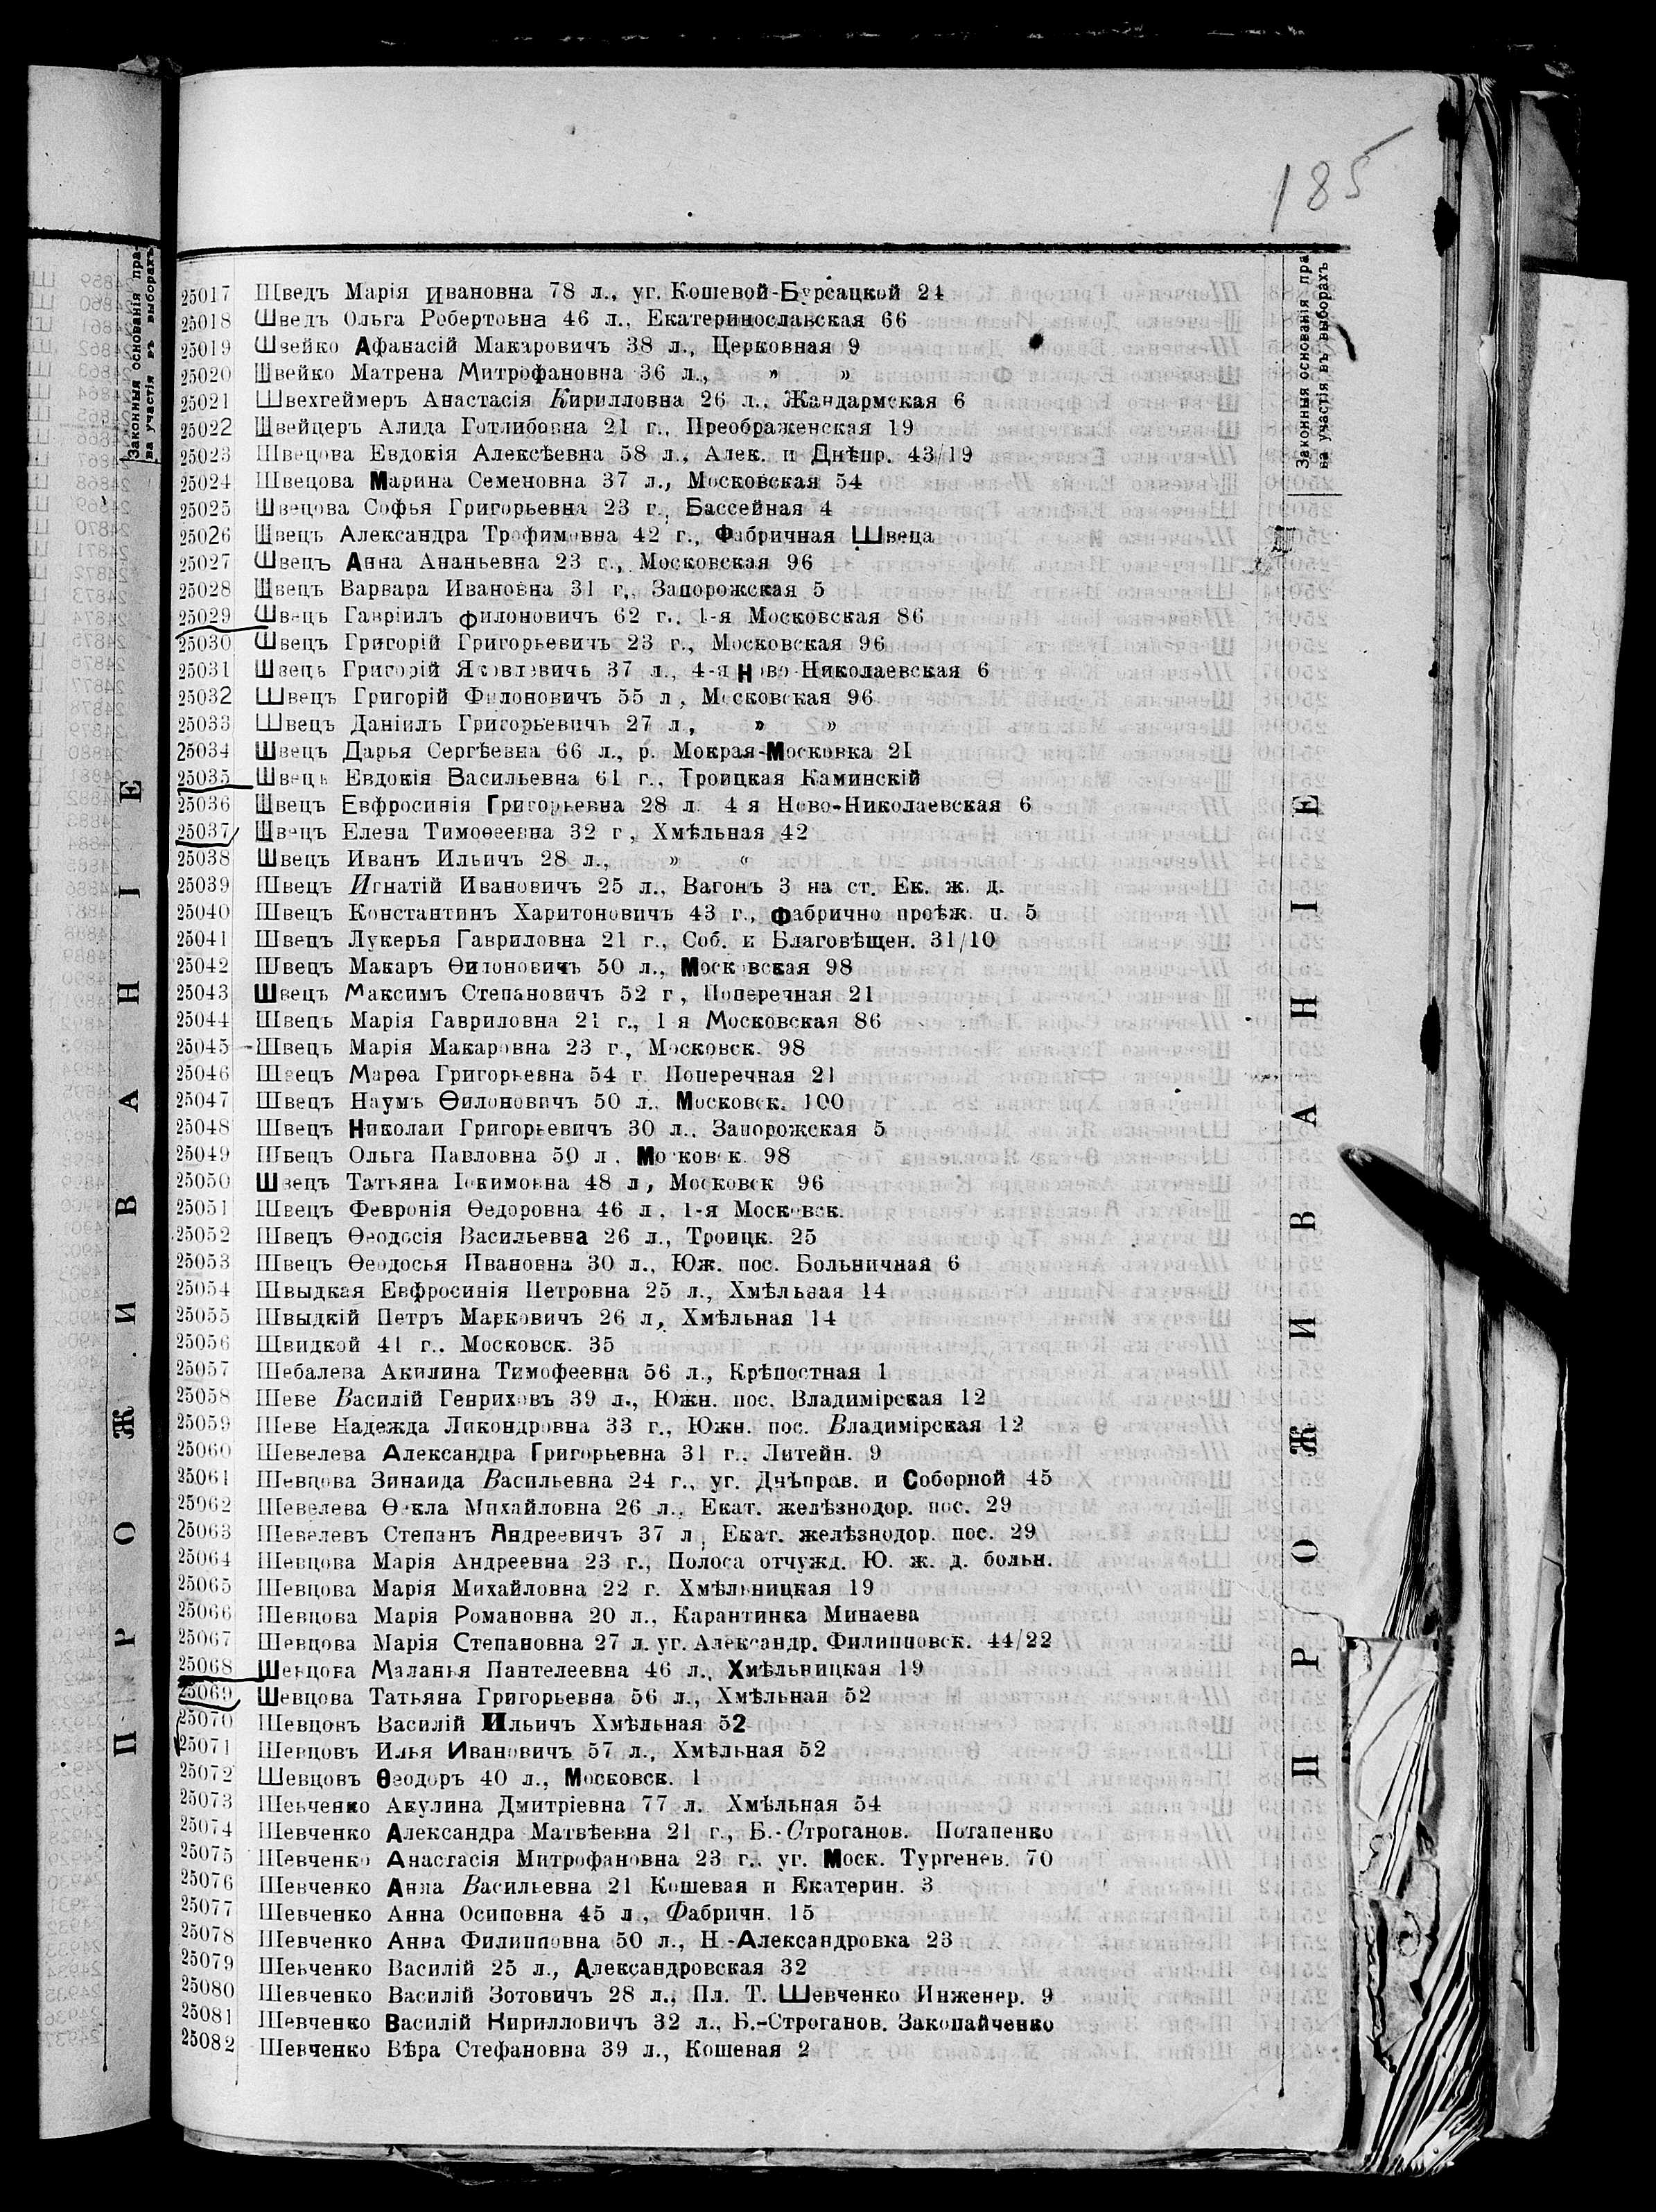 185
Законныя основанія пра-
ва участія въ выборахъ
ПРОЖИВАНІЕ
25017 Шведъ Марія Ивановна 78 л., уг. Кошевой-Бурсацкой 24
25018 Шведъ Ольга Робертовна 46 л., Екатеринославская 66
25019 Швейко Афанасій Макаровичъ 38 л., Церковная 9
25020 Швейко Матрена Митрофановна 36 л., » »
25021 Швехгеймеръ Анастасія Кирилловна 26 л., Жандармская 6
25022 Швейцеръ Алида Готлибовна 21 г., Преображенская 19
25023 Швецова Евдокія Алексѣевна 58 л., Алек. и Днѣпр. 43/19
25024 Швецова Марина Семеновна 37 л., Московская 54
25025 Швецова Софья Григорьевна 23 г., Бассейная 4
25026 Швецъ Александра Трофимовна 42 г., Фабричная Швеца
25027 Швецъ Анна Ананьевна 23 г., Московская 96
25028 Швецъ Варвара Ивановна 31 г., Запорожская 5
25029 Швець Гавріилъ филоновичъ 62 г., 1-я Московская 86
25030 Швецъ Григорій Григорьевичъ 23 г., Московская 96
25031 Швець Григорій Яковлевичь 37 л., 4-я Ново-Николаевская 6
25032 Швецъ Григорій Филоновичъ 55 л, Московская 96
25033 Швецъ Даніилъ Григорьевичъ 27 л., » »
25034 Швецъ Дарья Сергѣевна 66 л., р. Мокрая-Московка 21
25035 Швець Евдокія Васильевна 61 г., Троицкая Каминскій
25036 Швецъ Евфросинія Григорьевна 28 л. 4 я Ново-Николаевская 6
25037 Швецъ Елена Тимоѳеевна 32 г, Хмѣльная 42
25038 Швецъ Иванъ Ильичъ 28 л., » «
25039 Швецъ Игнатій Ивановичъ 25 л., Вагонъ 3 на ст. Ек. ж. д.
25040 Швецъ Константинъ Харитоновичъ 43 г., фабрично проѣж. п. 5
25041 Швецъ Лукерья Гавриловна 21 г., Соб. и Благовѣщен. 31/10
25042 Швецъ Макаръ Ѳилоновичъ 50 л., Московская 98
25043 Швецъ Максимъ Степановичъ 52 г, Поперечная 21
25044 Швецъ Марія Гавриловна 21 г., 1 я Московская 86
25045 Швець Марія Макаровна 23 г., Московск. 98
25046 Швецъ Марѳа Григорьевна 54 г. Поперечная 21
25047 Швецъ Наумъ Ѳилоновичъ 50 л. Московск. 100
25048 Швецъ Николаи Григорьевичъ 30 л.. Запорожская 5
25049 Швецъ Ольга Павловна 50 л, Московск. 98
25050 Швецъ Татьяна Іокимовна 48 л, Московск 96
25051 Швецъ Февронія Ѳедоровна 46 л, 1-я Московск.
25052 Швецъ Ѳеодосія Васильевна 26 л., Троицк. 25
25053 Швецъ Ѳеодосья Ивановна 30 л., Юж. пос. Больничная 6
25054 Швыдкая Евфросинія Петровна 25 л., Хмѣльная 14
25055 Швыдкій Петръ Марковичъ 26 л, Хмѣльная 14
25056 Швидкой 41 г.. Московск. 35
25057 Шебалева Акилина Тимофеевна 56 л., Крѣпостная 1
25058 Шеве Василій Генриховъ 39 л., Южн. пос. Владимірская 12
25059 Шеве Надежда Ликондровна 33 г., Южн. пос. Владимірская 12
25060 Шевелева Александра Григорьевна 31 г., Литейн. 9
25061 Шевцова Зинаида Васильевна 24 г., уг. Днѣпров. и Соборной 45
25062 Шевелева Ѳекла Михайловна 26 л., Екат. желѣзнодор. пос. 29
25063 Шевелевъ Степанъ Андреевичъ 37 л, Екат. желѣзнодор. пос. 29
25064 Шевцова Марія Андреевна 23 г., Полоса отчужд. Ю. ж. д. больн.
25065 Шевцова Марія Михайловна 22 г. Хмѣльницкая 19
25066 Шевцова Марія Романовна 20 л., Карантинка Минаева
25067 Шевцова Марія Степановна 27 л. уг. Александр. Филипповск. 44/22
25068 Шевцова Маланья Пантелеевна 46 л., Хмѣльницкая 19
25069 Шевцова Татьяна Григорьевна 56 л., Хмѣльная 52
25070 Шевцовъ Василій Ильичъ Хмѣльная 52
25071 Шевцовъ Илья Ивановичъ 57 л., Хмѣльная 52
25072 Шевцовъ Ѳеодоръ 40 л., Московск. 1
25073 Шевченко Акулина Дмитріевна 77 л. Хмѣльная 54
25074 Шевченко Александра Матвѣевна 21 г., Б.-Строганов. Потапенко
25075 Шевченко Анастасія Митрофановна 23 г., уг. Моск. Тургенев. 70
25076 Шевченко Анна Васильевна 21 Кошевая и Екатерин. 3
25077 Шевченко Анна Осиповна 45 л, Фабричн. 15
25078 Шевченко Анна Филипповна 50 л., Н-Александровка 23
25079 Шевченко Василій 25 л., Александровская 32
25080 Шевченко Василій Зотовичъ 28 л., Пл. Т. Шевченко Инженер. 9
25081 Шевченко Василій Кирилловичъ 32 л., Б.-Строганов. Закопайченко
25082 Шевченко Вѣра Стефановна 39 л., Кошевая 2
Законныя основанія пра
ва участія въ выборахъ
ПРОЖИВАНІЕ